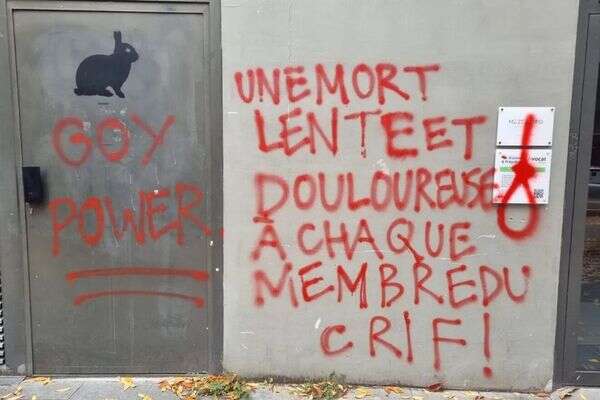 GOY
POWER.
UNE MORT
LENTE ET
DOULOUREUSE
À CHAQUE
MEMBRE DU
CRIF!
vocal